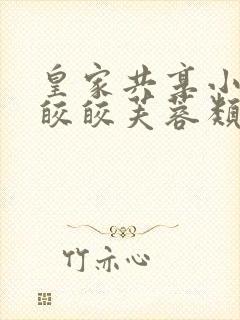 皇家共享小
皎皎芙蓉类
竹亦心